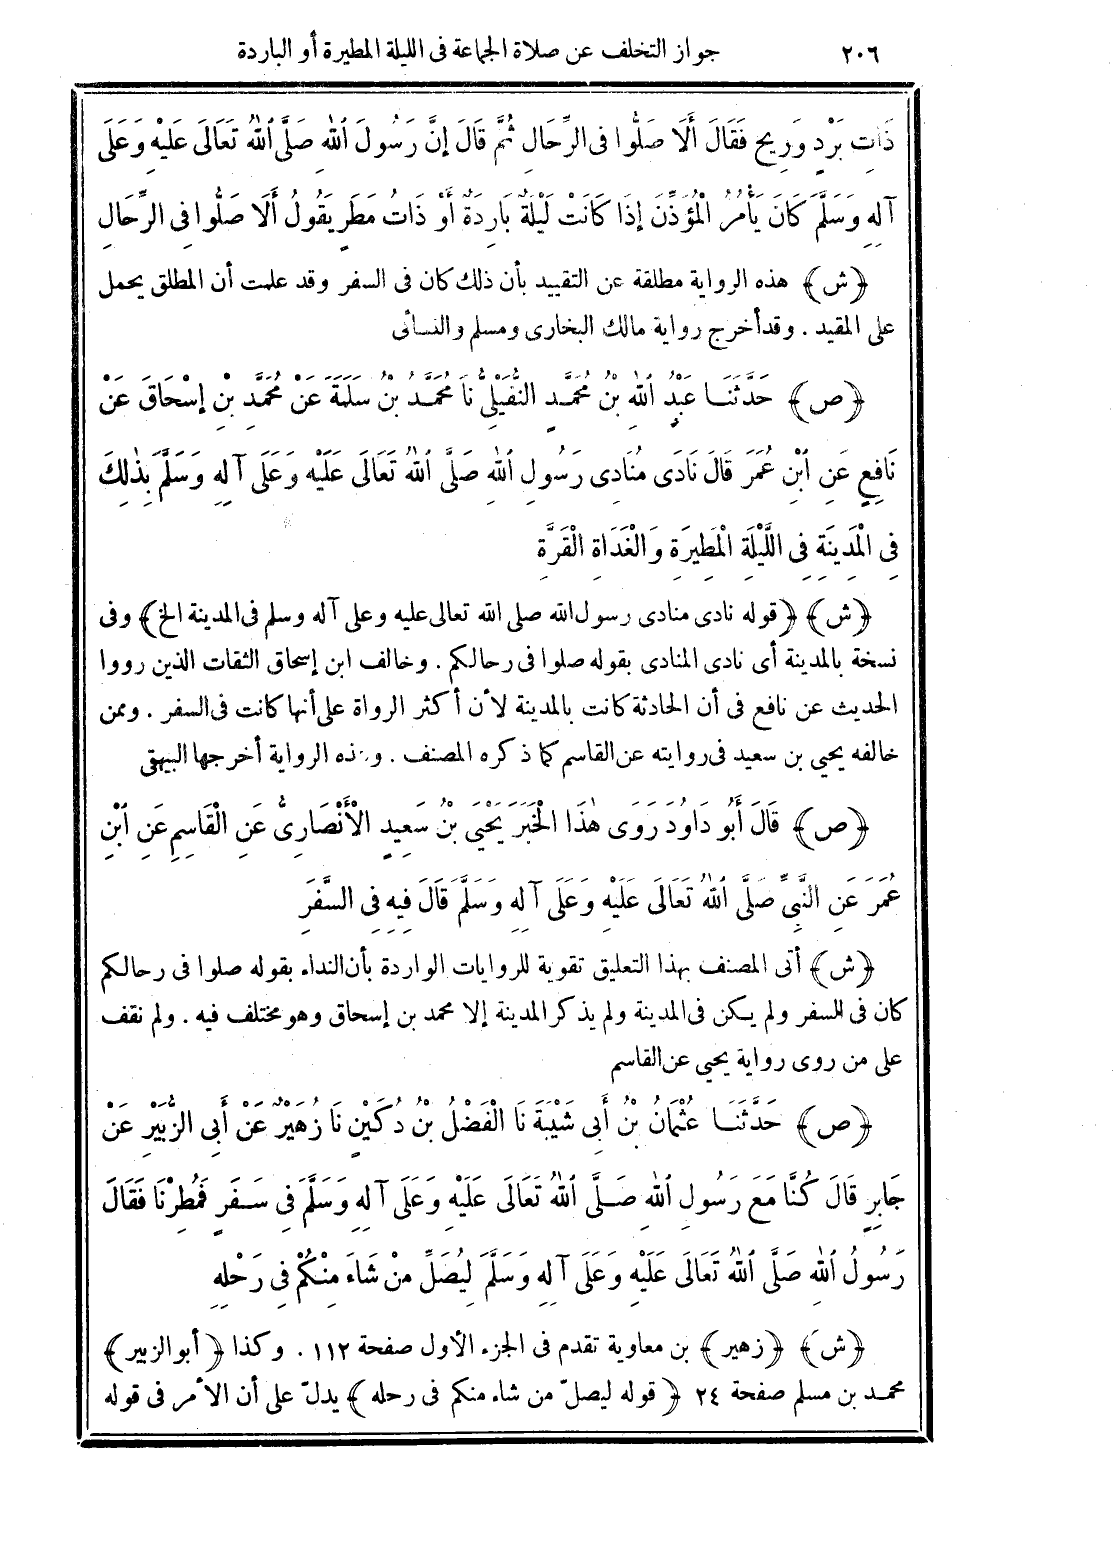 ٢٠٦ جواز التخلف عن صلاة الجماعة فى الليلة المطيرة أو الباردة
ذَاتِ بَرْدٍ وَرِيحٍ فَقَالَ أَلَا صَلُّوا فِى الرِّحَالِ ثُمَّ قَالَ إِنَّ رَسُولَ ٱللهِ صَلَّى ٱللهُ تَعَالَى عَلَيْهِ وَعَلَى
آلِهِ وَسَلَّمَ كَانَ يَأْمُرُ الْمُؤَذِّنَ إِذَا كَانَتْ لَيْلَةٌ بَارِدَةٌ أَوْ ذَاتُ مَطَرٍ يَقُولُ أَلَا صَلُّوا فِى الرِّحَالِ
﴿ش﴾ هذه الرواية مطلقة عن التقييد بأن ذلك كان فى السفر وقد علمت أن المطلق يحمل
على المقيد . وقد أخرج رواية مالك البخارى ومسلم والنسائى
﴿ص﴾ حَدَّثَنَا عَبْدُ ٱللهِ بْنُ مُحَمَّدٍ النُّفَيْلِىُّ نَا مُحَمَّدُ بْنُ سَلَمَةَ عَنْ مُحَمَّدِ بْنِ إِسْحَاقَ عَنْ
نَافِعٍ عَنِ ٱبْنِ عُمَرَ قَالَ نَادَى مُنَادِى رَسُولِ ٱللهِ صَلَّى ٱللهُ تَعَالَى عَلَيْهِ وَعَلَى آلِهِ وَسَلَّمَ بِذٰلِكَ
فِى الْمَدِينَةِ فِى اللَّيْلَةِ الْمَطِيرَةِ وَالْغَدَاةِ الْقَرَّةِ
﴿ش﴾ ﴿قوله نادى منادى رسول الله صلى الله تعالى عليه وعلى آله وسلم فى المدينة الخ﴾ وفى
نسخة بالمدينة أى نادى المنادى بقوله صلوا فى رحالكم . وخالف ابن إسحاق الثقات الذين رووا
الحديث عن نافع فى أن الحادثة كانت بالمدينة لأن أكثر الرواة على أنها كانت فى السفر . وممن
خالفه يحيى بن سعيد فى روايته عن القاسم كما ذكره المصنف . وهذه الرواية أخرجها البيهقى
﴿ص﴾ قَالَ أَبُو دَاوُدَ رَوَى هٰذَا الْخَبَرَ يَحْيَى بْنُ سَعِيدٍ الْأَنْصَارِىُّ عَنِ الْقَاسِمِ عَنِ ٱبْنِ
عُمَرَ عَنِ النَّبِىِّ صَلَّى ٱللهُ تَعَالَى عَلَيْهِ وَعَلَى آلِهِ وَسَلَّمَ قَالَ فِيهِ فِى السَّفَرِ
﴿ش﴾ أتى المصنف بهذا التعليق تقوية للروايات الواردة بأن النداء بقوله صلوا فى رحالكم
كان فى السفر ولم يكن فى المدينة ولم يذكر المدينة إلا محمد بن إسحاق وهو مختلف فيه . ولم نقف
على من روى رواية يحيى عن القاسم
﴿ص﴾ حَدَّثَنَا عُثْمَانُ بْنُ أَبِى شَيْبَةَ نَا الْفَضْلُ بْنُ دُكَيْنٍ نَا زُهَيْرٌ عَنْ أَبِى الزُّبَيْرِ عَنْ
جَابِرٍ قَالَ كُنَّا مَعَ رَسُولِ ٱللهِ صَلَّى ٱللهُ تَعَالَى عَلَيْهِ وَعَلَى آلِهِ وَسَلَّمَ فِى سَفَرٍ فَمُطِرْنَا فَقَالَ
رَسُولُ ٱللهِ صَلَّى ٱللهُ تَعَالَى عَلَيْهِ وَعَلَى آلِهِ وَسَلَّمَ لِيُصَلِّ مَنْ شَاءَ مِنْكُمْ فِى رَحْلِهِ
﴿ش﴾ ﴿زهير﴾ بن معاوية تقدم فى الجزء الأول صفحة ١١٢ . وكذا ﴿أبو الزبير﴾
محمد بن مسلم صفحة ٢٤ ﴿قوله ليصلّ من شاء منكم فى رحله﴾ يدلّ على أن الأمر فى قوله